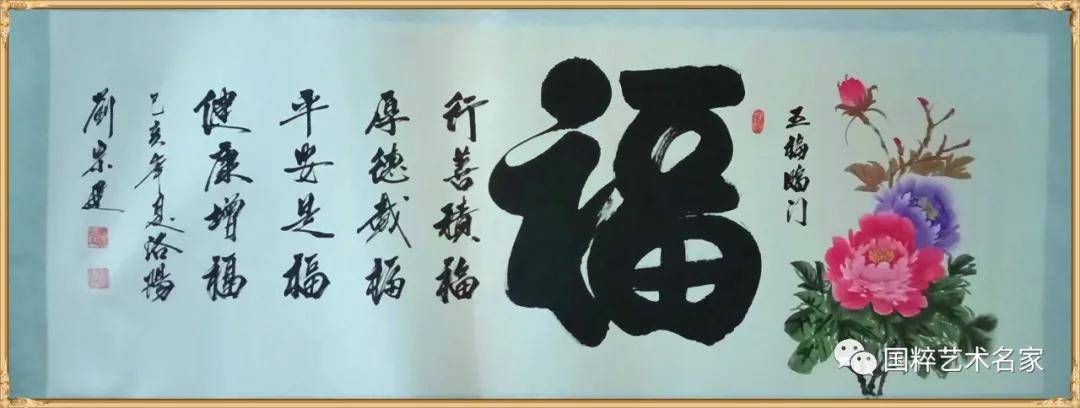 五福临门
福
行善積福
厚德载福
平安是福
健康增福
己亥年夏洛陽
国粹艺术名家